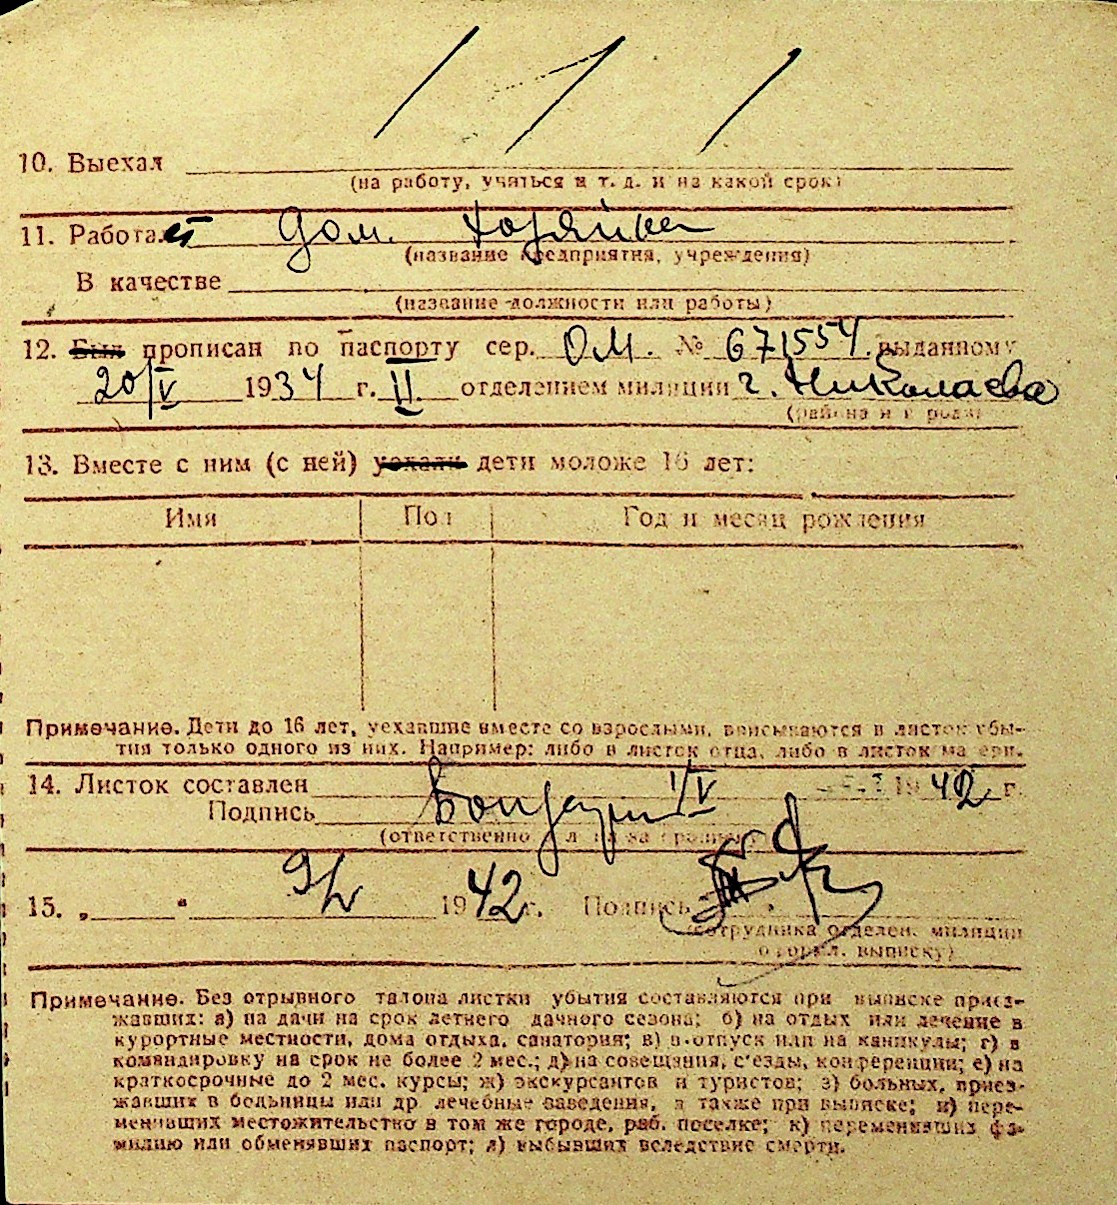 10. Выехал
(на работу, учиться и т. д. и на какой срок)
11. Работает дом. хозяйка
(название предприятия, учреждения)
В качестве
(название должности или работы)
12. Был прописан по паспорту сер. ОМ. № 671554 выданному
20/V 1934 г. II отделением милиции г. Николаева
(района и города)
13. Вместе с ним (с ней) уехали дети моложе 16 лет:
Имя Пол Год и месяц рождения
Примечание. Дети до 16 лет, уехавшие вместе со взрослыми, вписываются в листок убы-
тия только одного из них. Например: либо в листок отца, либо в листок матери.
14. Листок составлен 1/V 1942 г.
Подпись
(ответственно за прописку)
15. „ “ 9/V 1942 г. Подпись
(сотрудника отделен. милиции
оформл. выписку)
Примечание. Без отрывного талона листки убытия составляются при выписке приез-
жавших: а) на дачи на срок летнего дачного сезона; б) на отдых или лечение в
курортные местности, дома отдыха, санатория; в) в отпуск или на каникулы; г) в
командировку на срок не более 2 мес.; д) на совещания, с'езды, конференции; е) на
краткосрочные до 2 мес. курсы; ж) экскурсантов и туристов; з) больных, приез-
жавших в больницы или др. лечебные заведения, а также при выписке; и) пере-
менивших местожительство в том же городе, раб. поселке; к) переменивших фа-
милию или обменявших паспорт; л) выбывших вследствие смерти.